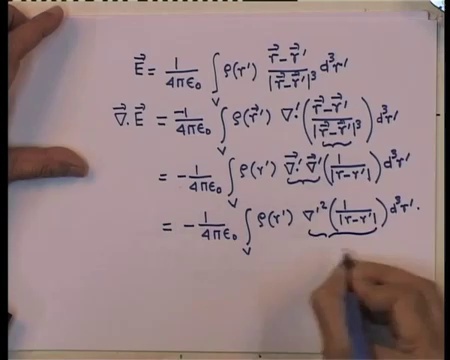 E⃗ = 1/4πε₀ ∫_V ρ(r') (r⃗-r⃗')/|r⃗-r⃗'|³ d³r'
∇⃗.E⃗ = -1/4πε₀ ∫_V ρ(r⃗') ∇'.((r⃗-r⃗')/|r⃗-r⃗'|³) d³r'
= -1/4πε₀ ∫_V ρ(r') ∇⃗'.∇⃗'(1/|r-r'|) d³r'
= -1/4πε₀ ∫_V ρ(r') ∇'²(1/|r-r'|) d³r'.